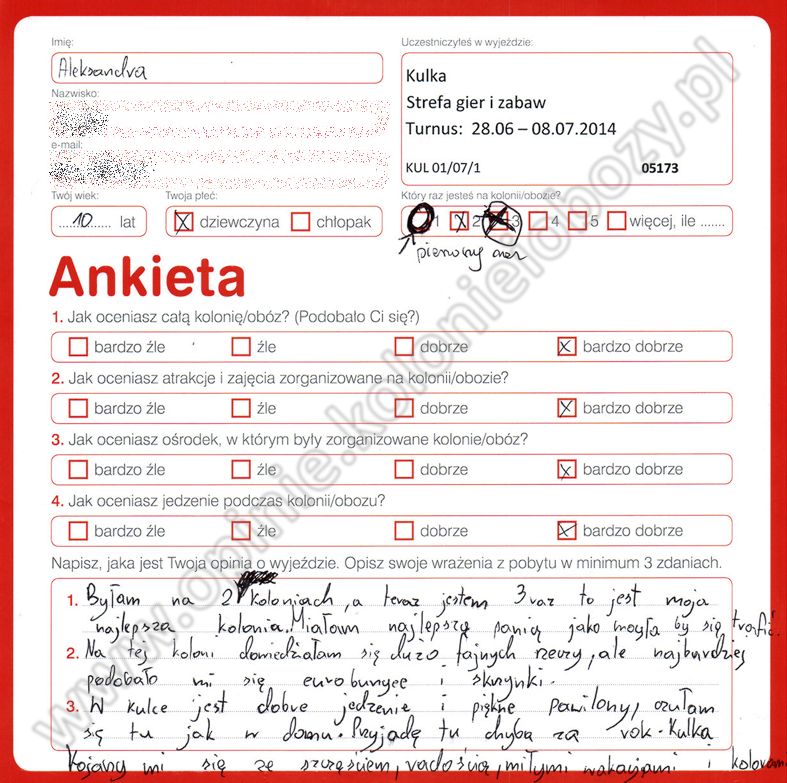 Imię:
Aleksandra
Nazwisko:
e-mail:
Twój wiek:
10 lat
Twoja płeć:
dziewczyna chłopak
Uczestniczyłeś w wyjeździe:
Kulka
Strefa gier i zabaw
Turnus: 28.06 – 08.07.2014
KUL 01/07/1 05173
Który raz jesteś na kolonii/obozie?
1 2 3 4 5 więcej, ile .......
pierwszy raz
Ankieta
1. Jak oceniasz całą kolonię/obóz? (Podobało Ci się?)
bardzo źle źle dobrze bardzo dobrze
2. Jak oceniasz atrakcje i zajęcia zorganizowane na kolonii/obozie?
bardzo źle źle dobrze bardzo dobrze
3. Jak oceniasz ośrodek, w którym były zorganizowane kolonie/obóz?
bardzo źle źle dobrze bardzo dobrze
4. Jak oceniasz jedzenie podczas kolonii/obozu?
bardzo źle źle dobrze bardzo dobrze
Napisz, jaka jest Twoja opinia o wyjeździe. Opisz swoje wrażenia z pobytu w minimum 3 zdaniach.
1. Byłam na 2 koloniach, a teraz jestem 3 raz to jest moja
najlepsza kolonia. Miałam najlepszą panią jako mogła by się trafić.
2. Na tej koloni dowiedziałam się dużo fajnych rzeczy, ale najbardziej
podobało mi się eurobungee i skrzynki.
3. W kulce jest dobre jedzenie i piękne pawilony, czułam
się tu jak w domu. Przyjadę tu chyba za rok. Kulka
kojarzy mi się ze szczęściem, radością, miłymi wakacjami i
www.opinie.kolonieiobozy.pl